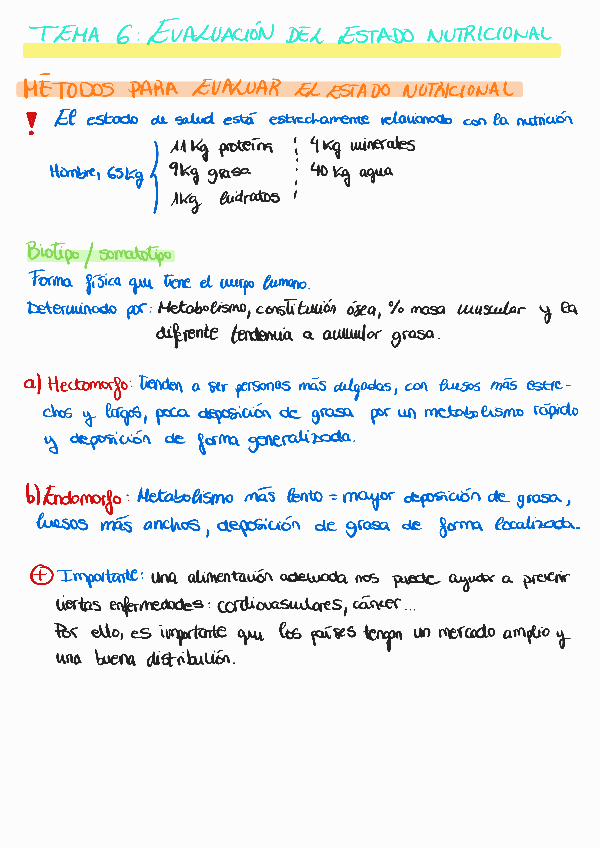 TEMA 6: EVALUACIÓN DEL ESTADO NUTRICIONAL
MÉTODOS PARA EVALUAR EL ESTADO NUTRICIONAL
! El estado de salud está estrechamente relacionado con la nutrición
Hombre, 65kg
11 Kg proteína 4 Kg minerales
9 Kg grasa 40 Kg agua
1 Kg hidratos
Biotipo / somatotipo
Forma física que tiene el cuerpo humano.
Determinado por: Metabolismo, constitución ósea, % masa muscular y la
diferente tendencia a acumular grasa.
a) Hectomorfo: tienden a ser personas más delgadas, con huesos más estre-
chos y largos, poca deposición de grasa por un metabolismo rápido
y deposición de forma generalizada.
b) Endomorfo: Metabolismo más lento = mayor deposición de grasa,
huesos más anchos, deposición de grasa de forma localizada.
+ Importante: una alimentación adecuada nos puede ayudar a prevenir
ciertas enfermedades: cardiovasculares, cáncer...
Por ello, es importante que los países tengan un mercado amplio y
una buena distribución.